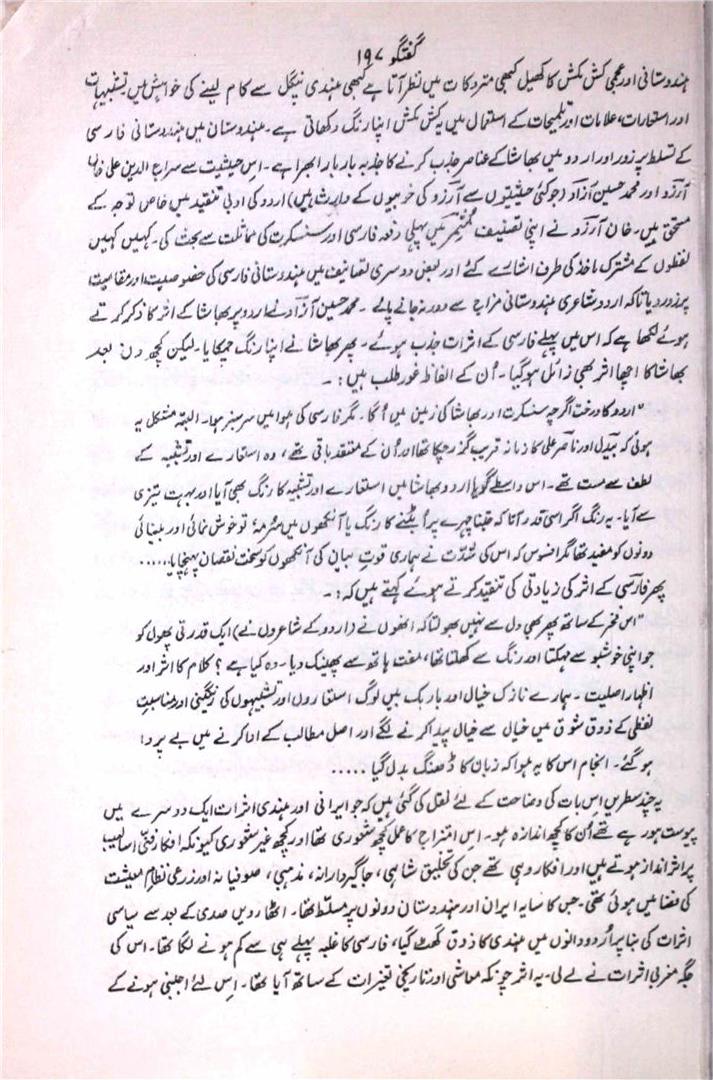 گفتگو ۱۹۷
ہندوستانی اور عجمی کش مکش کا کھیل کبھی متروکات میں نظر آتا ہے کبھی ہندی نیگل سے کام لینے کی خواہش میں تشبیہات
اور استعارات، علامات اور تلمیحات کے استعمال میں یہ کش مکش اپنا رنگ دکھاتی ہے۔ ہندوستان میں ہندوستانی فارسی
کے تسلط پر زور اور اردو میں بھاشا کے عناصر جذب کرنے کا جذبہ بار بار ابھرا ہے۔ اس حیثیت سے سراج الدین علی خاں
آرزو اور محمد حسین آزاد (جو کئی حیثیتوں سے آرزو کی خوبیوں کے وارث ہیں) اردو کی ادبی تنقید میں خاص توجہ کے
مستحق ہیں۔ خان آرزو نے اپنی تصنیف مثمر میں پہلی دفعہ فارسی اور سنسکرت کی مماثلت سے بحث کی۔ کہیں کہیں
لفظوں کے مشترک ماخذ کی طرف اشارے کئے اور بعض دوسری تصانیف میں ہندوستانی فارسی کی خصوصیت اور مقامیت
پر زور دیا تاکہ اردو شاعری ہندوستانی مزاج سے دور نہ جانے پائے۔ محمد حسین آزاد نے اردو پر بھاشا کے اثر کا ذکر کرتے
ہوئے لکھا ہے کہ اس میں پہلے فارسی کے اثرات جذب ہوئے۔ پھر بھاشا نے اپنا رنگ چمکایا۔ لیکن کچھ دن بعد
بھاشا کا اچھا اثر بھی زائل ہو گیا۔ اُن کے الفاظ غور طلب ہیں:۔
"اردو کا درخت اگرچہ سنسکرت اور بھاشا کی زمین میں اُگا۔ مگر فارسی کی ہوا میں سرسبز ہوا۔ البتہ مشکل یہ
ہوئی کہ بیدل اور ناصر علی کا زمانہ قریب گذر چکا تھا اور اُن کے معتقد باقی تھے، وہ استعارے اور تشبیہ کے
لطف سے مست تھے۔ اس واسطے گویا اردو بھاشا میں استعارے اور تشبیہ کا رنگ بھی آیا اور بہت تیزی
سے آیا۔ یہ رنگ اگر اسی قدر آتا کہ جتنا چہرے پر اُبٹنے کا رنگ یا آنکھوں میں سُرمہ تو خوش نمائی اور بینائی
دونوں کو مفید تھا مگر افسوس کہ اس کی شدّت نے ہماری قوتِ بیان کی آنکھوں کو سخت نقصان پہنچایا.....
پھر فارسی کے اثر کی زیادتی کی تنقید کرتے ہوئے کہتے ہیں کہ:۔
"اس فخر کے ساتھ پھر بھی دل سے نہیں بھولتا کہ انھوں نے (اردو کے شاعروں نے) ایک قدرتی پھول کو
جو اپنی خوشبو سے مہکتا اور رنگ سے کھلتا تھا، مفت ہاتھ سے پھینک دیا۔ وہ کیا ہے؟ کلام کا اثر اور
اظہارِ اصلیت۔ ہمارے نازک خیال اور باریک بیں لوگ استعاروں اور تشبیہوں کی رنگینی اور مناسبتِ
لفظی کے ذوق شوق میں خیال سے خیال پیدا کرنے لگے اور اصل مطالب کے ادا کرنے میں بے پروا
ہو گئے۔ انجام اس کا یہ ہوا کہ زبان کا ڈھنگ بدل گیا.....
یہ چند سطریں اس بات کی وضاحت کے لئے نقل کی گئی ہیں کہ جو ایرانی اور ہندی اثرات ایک دوسرے میں
پیوست ہو رہے تھے اُن کا کچھ اندازہ ہو۔ اس امتزاج کا عمل کچھ شعوری تھا اور کچھ غیر شعوری کیونکہ افکار فنی اسالیب
پر اثر انداز ہوتے ہیں اور افکار وہی تھے جن کی تخلیق شاہی، جاگیردارانہ، مذہبی، صوفیانہ اور زرعی نظامِ معیشت
کی فضا میں ہوئی تھی۔ جس کا سایہ ایران اور ہندوستان دونوں پر مسلّط تھا۔ اٹھارویں صدی کے بعد سے سیاسی
اثرات کی بنا پر اُردو دانوں میں ہندی کا ذوق گھٹ گیا، فارسی کا غلبہ پہلے ہی سے کم ہونے لگا تھا۔ اس کی
جگہ مغربی اثرات نے لے لی۔ یہ اثر چونکہ معاشی اور تاریخی تغیرات کے ساتھ آیا تھا۔ اس لئے اجنبی ہونے کے